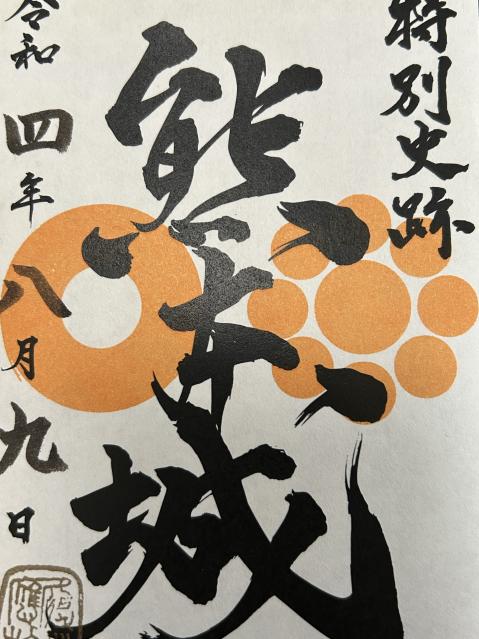 特別史跡
熊本城
令和四年八月九日